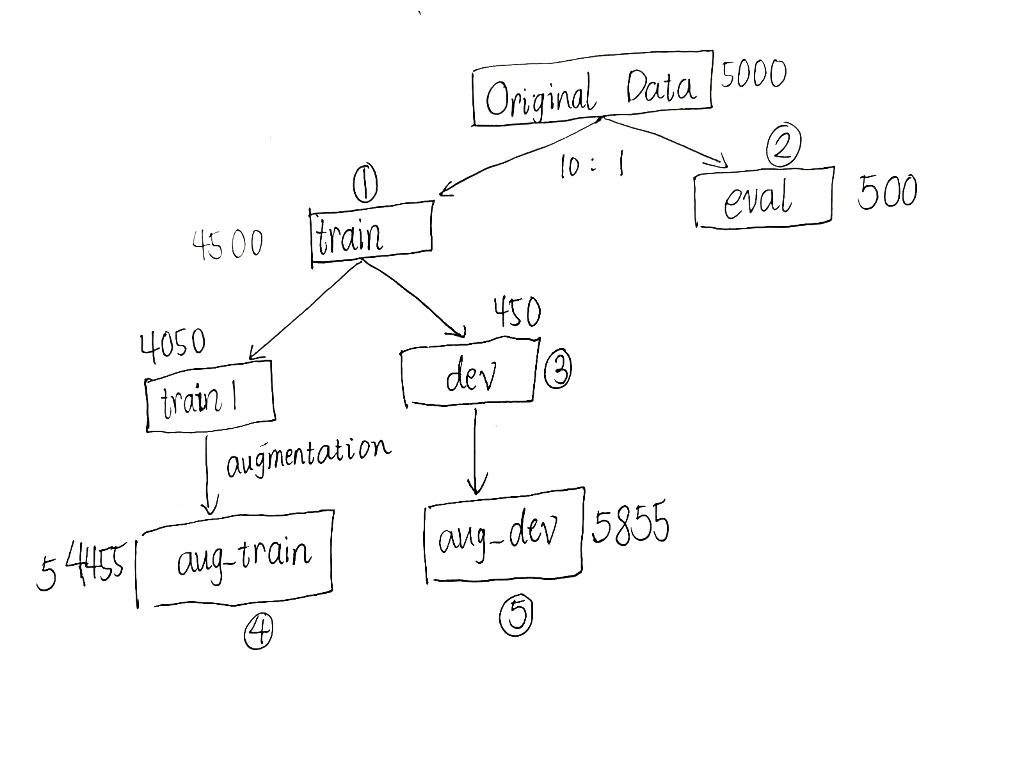 Original Data 5000
10 : 1
①
②
4500 train
eval 500
4050
450
train1
dev ③
augmentation
54455 aug_train
aug_dev 5855
④
⑤